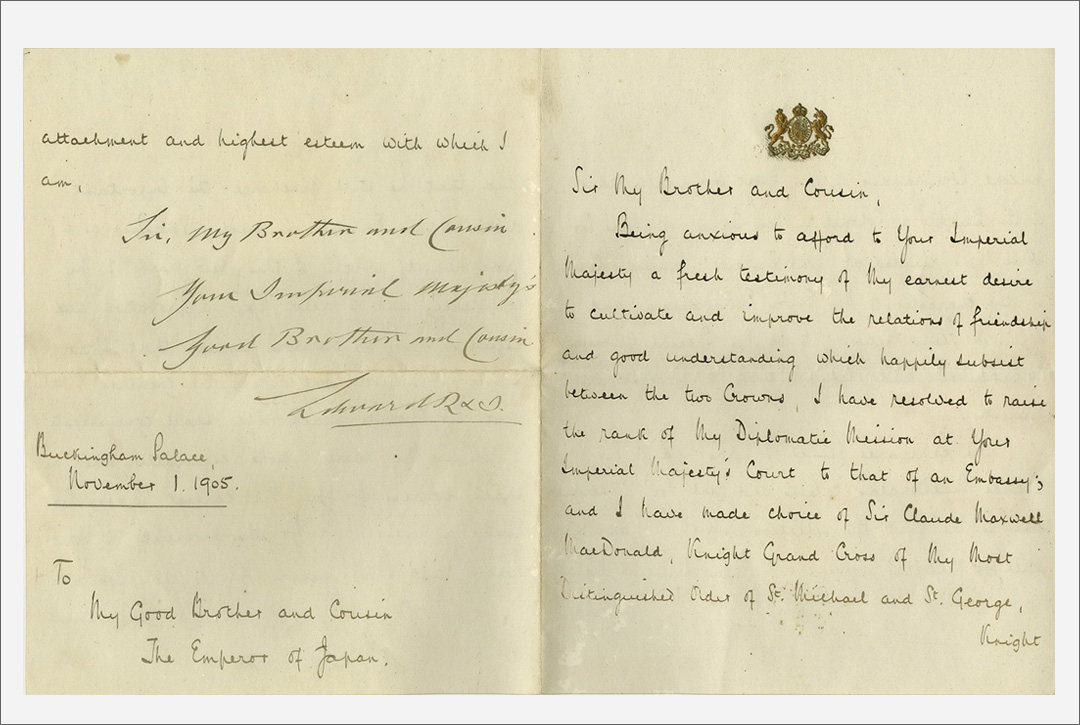 Sir My Brother and Cousin,
Being anxious to afford to Your Imperial
Majesty a fresh testimony of My earnest desire
to cultivate and improve the relations of friendship
and good understanding which happily subsist
between the two Crowns, I have resolved to raise
the rank of My Diplomatic Mission at Your
Imperial Majesty's Court to that of an Embassy;
and I have made choice of Sir Claude Maxwell
MacDonald, Knight Grand Cross of My Most
Distinguished Order of St. Michael and St. George,
Knight
attachment and highest esteem with which I
am,
Sir, My Brother and Cousin
Your Imperial Majesty's
Good Brother and Cousin
Edward R&I.
Buckingham Palace,
November 1. 1905.
To
My Good Brother and Cousin
The Emperor of Japan.